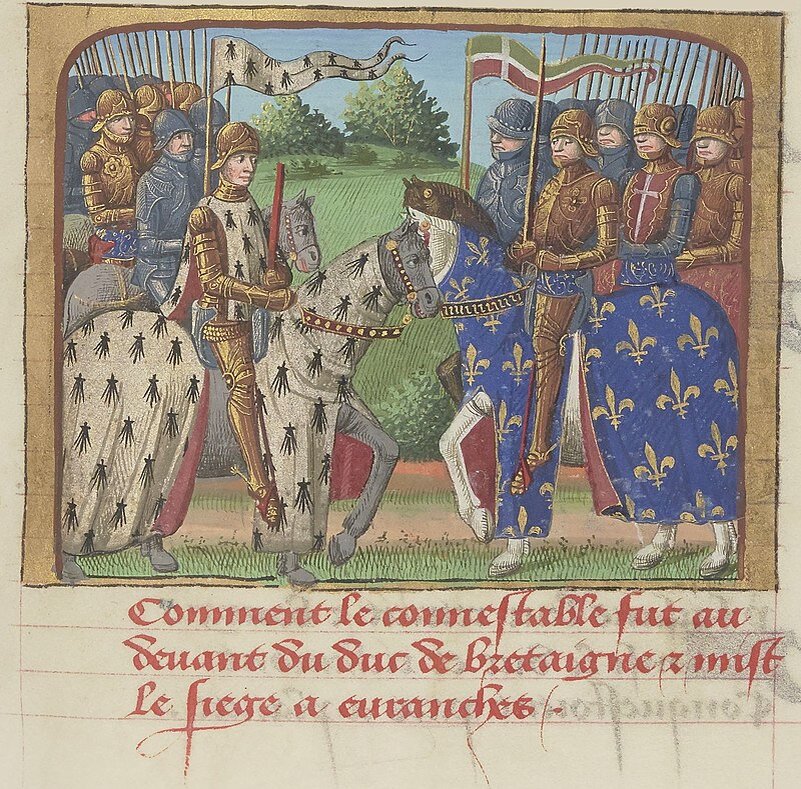 Comment le connestable fut au
devant du duc de bretaigne & mist
le siege a euranches